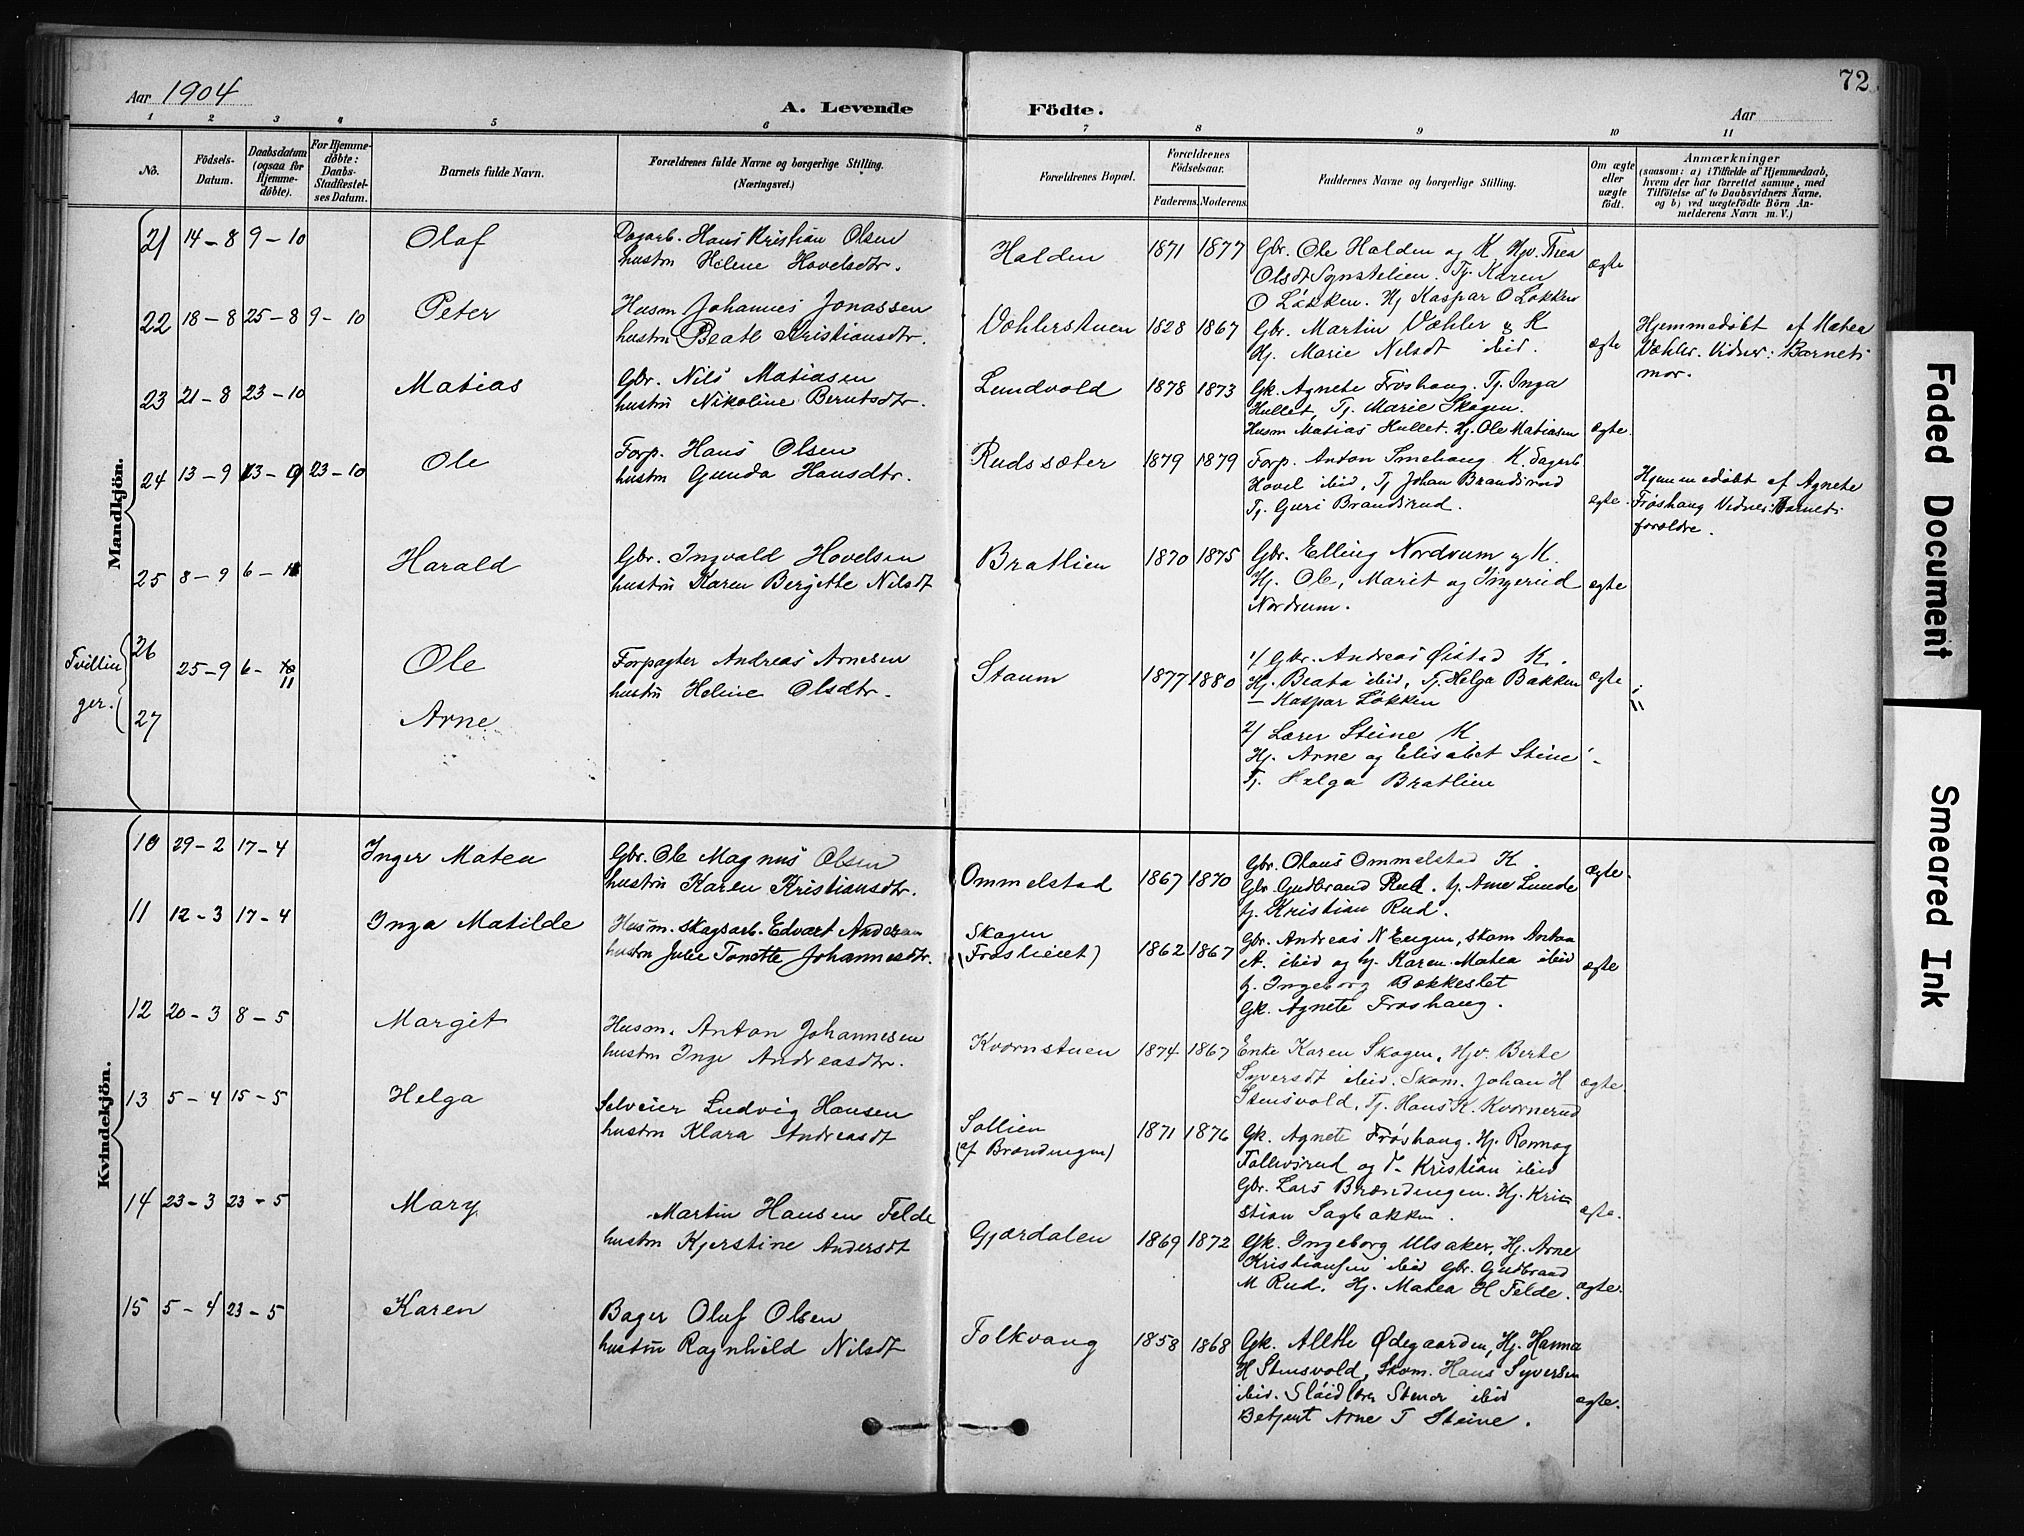 72
Aar 1904
A. Levende
Födte.
Aar
1 2 3 4 5 6 7 8 9 10 11
No.
Födsels-Datum.
Daabsdatum (ogsaa for Hjemme-döbte).
For Hjemme-döbte: Daabs-Stadfæstel-ses Datum.
Barnets fulde Navn.
Forældrenes fulde Navne og borgerlige Stilling.
(Næringsvei.)
Forældrenes Bopæl.
Forældrenes Födselsaar.
Faderens. Moderens.
Faddernes Navne og borgerlige Stilling.
Om ægte eller uægte födt.
Anmærkninger
(saasom: a) i Tilfælde af Hjemmedaab,
hvem der har forrettet samme, med
Tilföielse af to Daabsvidners Navne,
og b) ved uægtefödte Börn An-
melderens Navn m. V.)
Mandkjön.
21 14-8 9-10 Olaf
Dagarb. Hans Kristian Olsen
hustru Helene Hovelsdtr.
Halden 1871 1877
Gbr. Ole Halden og K. Hgv. Thea
Olsdt Synstelien. Tj. Karen
O Løkken. Hj Kaspar O Løkken
ægte
22 18-8 25-8 9-10 Peter
Husm Johannes Jonassen
hustru Beate Kristiansdtr.
Væhlerstuen 1828 1867
Gbr. Martin Væhler og K
Hj. Marie Nilsdt ibid.
ægte
Hjemmedøbt af Matea
Væhler. Vidner: Barnets
mor.
23 21-8 23-10 Matias
Gbr. Nils Matiasen
hustru Nikoline Berntsdtr.
Lundvold 1878 1873
Gk. Agnete Frøshaug. Tj. Inga
Hullet, Tj. Marie Skogen.
Husm Matias Hullet. Hj. Ole Matiasen
ægte.
24 13-9 13-9 23-10 Ole
Forp. Hans Olsen
hustru Gunda Hansdtr.
Rudssæter 1879 1879
Forp. Anton Smehaug K. Dagarb
Hovel ibid, Tj Johan Brandsrud
Tj. Guri Brandsrud.
ægte.
Hjemmedøbt af Agnete
Frøshaug Vidner: Barnets
foreldre.
25 8-9 6-11 Harald
Gbr. Ingvald Hovelsen
hustru Karen Bergitte Nilsdt
Bratlien 1870 1875
Gbr. Elling Nordrum og K.
Hj. Ole, Marit og Ingerid
Nordrum.
ægte
Tvillin
ger.
26
25-9 6-11 Ole
Forpagter Andreas Arnesen
hustru Heline Olsdtr.
Staum 1877 1880
1/ Gbr. Andreas Øistad K.
Hj. Beata ibid, Tj. Helga Bakken
- Kaspar Løkken
ægte
27 Arne
2/ Lærer Steine K
Hj. Arne og Elisabet Steine
Tj. Helga Bratlien
Kvindekjön.
10 29-2 17-4 Inger Matea
Gbr. Ole Magnus Olsen
hustru Karen Kristiansdtr.
Ommelstad 1867 1870
Gbr. Olaus Ommelstad K.
Gbr. Gudbrand Rud. Hj. Arne Lunde
Hj. Kristian Rud.
ægte.
11 12-3 17-4 Inga Matilde
Husm. skogsarb. Edvart Andersen
hustru Julie Tonette Johannesdtr.
Skogen
(Frøslieiet) 1862 1867
Gbr. Andreas N Engen, skom Anton
A. ibid og Hj. Karen Matea ibid
Hj. Ingeborg Bækkeslet
Gk. Agnete Frøshaug.
ægte
12 20-3 8-5 Margit
Husm. Anton Johannesen
hustru Inge Andreasdtr.
Kvernstuen 1874 1867
Enke Karen Skogen, Hgv. Berte
Syversdt ibid. Skom. Johan H
Stensvold, Tj. Hans K. Kvernerud
ægte
13 5-4 15-5 Helga
Selveier Ludvig Hansen
hustru Klara Andreasdt
Sollien
(af Brændingen) 1871 1876
Gk. Agnete Frøshaug. Hj. Rønnog
Tollevsrud og T- Kristian ibid
Gbr. Lars Brændingen. Hj. Kri-
stian Sagbakken.
ægte.
14 23-3 23-5 Mary
Martin Hansen Felde
hustru Kjerstine Andersdt
Gjærdalen 1869 1872
Gk. Ingeborg Ulsaker, Hj. Arne
Kristiansen ibid Gbr. Gudbrand
M Rud. Hj. Matea H Felde.
ægte.
15 5-4 23-5 Karen
Bager Oluf Olsen
hustru Ragnhild Nilsdt
Folkvang 1858 1868
Gk. Alette Ødegaarden, Hj. Hanna
H Stensvold, Skom. Hans Syversen
ibid. Sløidlærer Stenor ibid
Betjent Arne T Steine.
ægte.
Faded Document
Smeared Ink